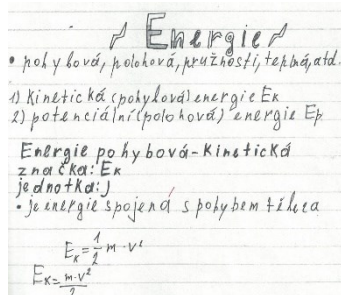 Energie
• pohybová, polohová, pružnosti, tepelná, atd.
1) Kinetická (pohybová) energie Ek
2) potenciální (polohová) energie Ep
Energie pohybová - Kinetická
značka: Ek
jednotka: J
• je energie spojená s pohybem tělesa
Ek = 1/2 m · v²
Ek = m · v²/2